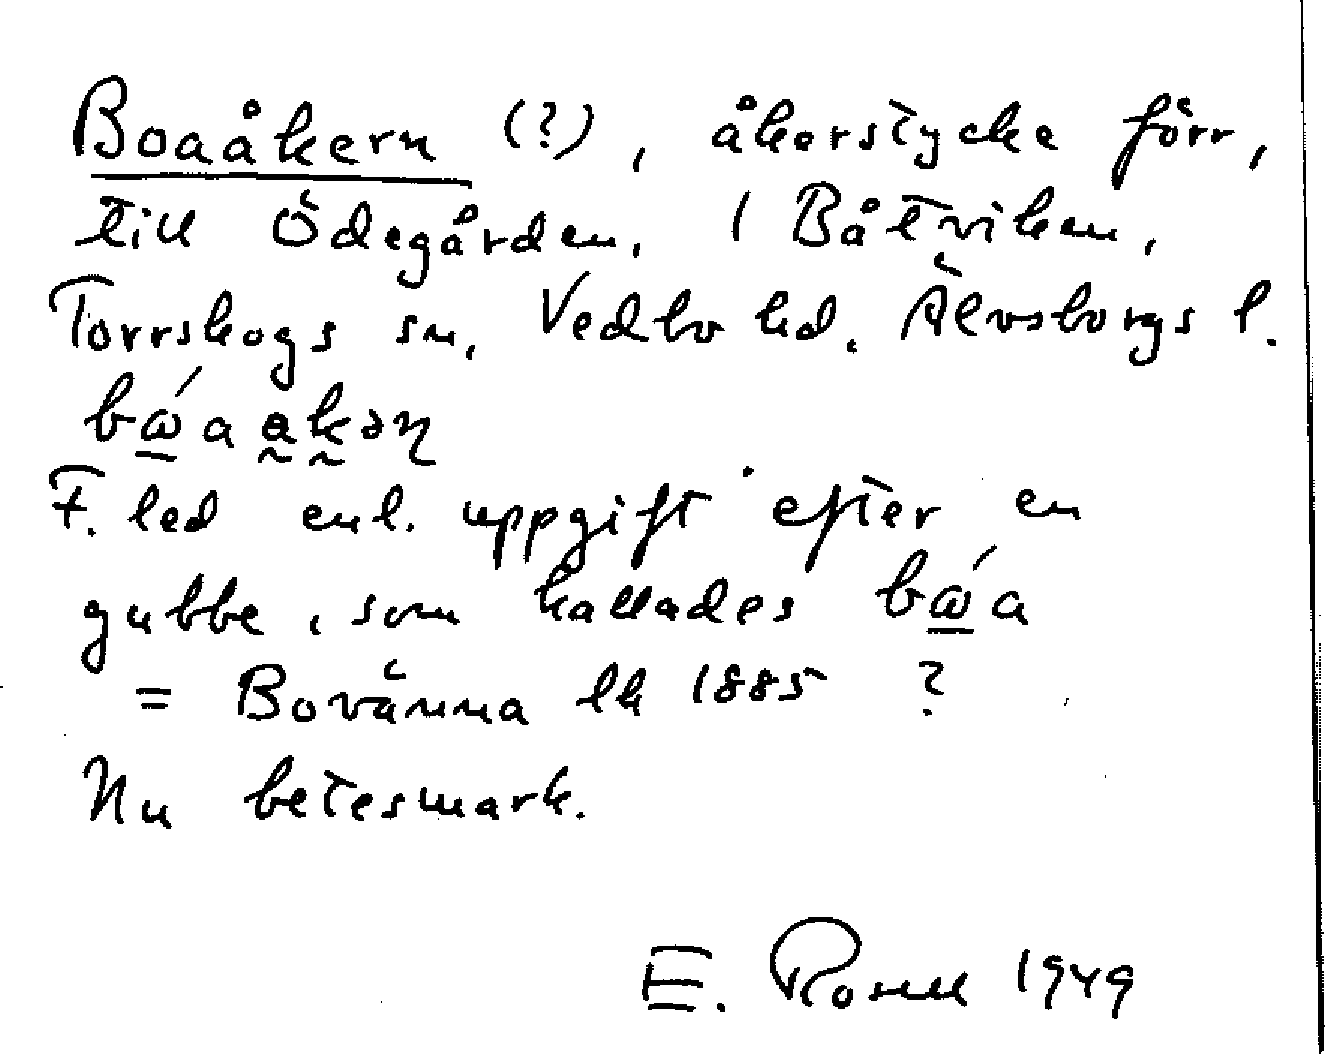 Boaåkern (?), åkerstycke förr,
till Ödegården, 1 Båtviken,
Torrskogs sn, Vedbo hd. Älvsborgs l.
bώa a̰k̰əɳ
F. led enl. uppgift efter en
gubbe, som kallades bώa
= Bovänna lk 1885 ?
Nu betesmark.
E. Rosell 1949